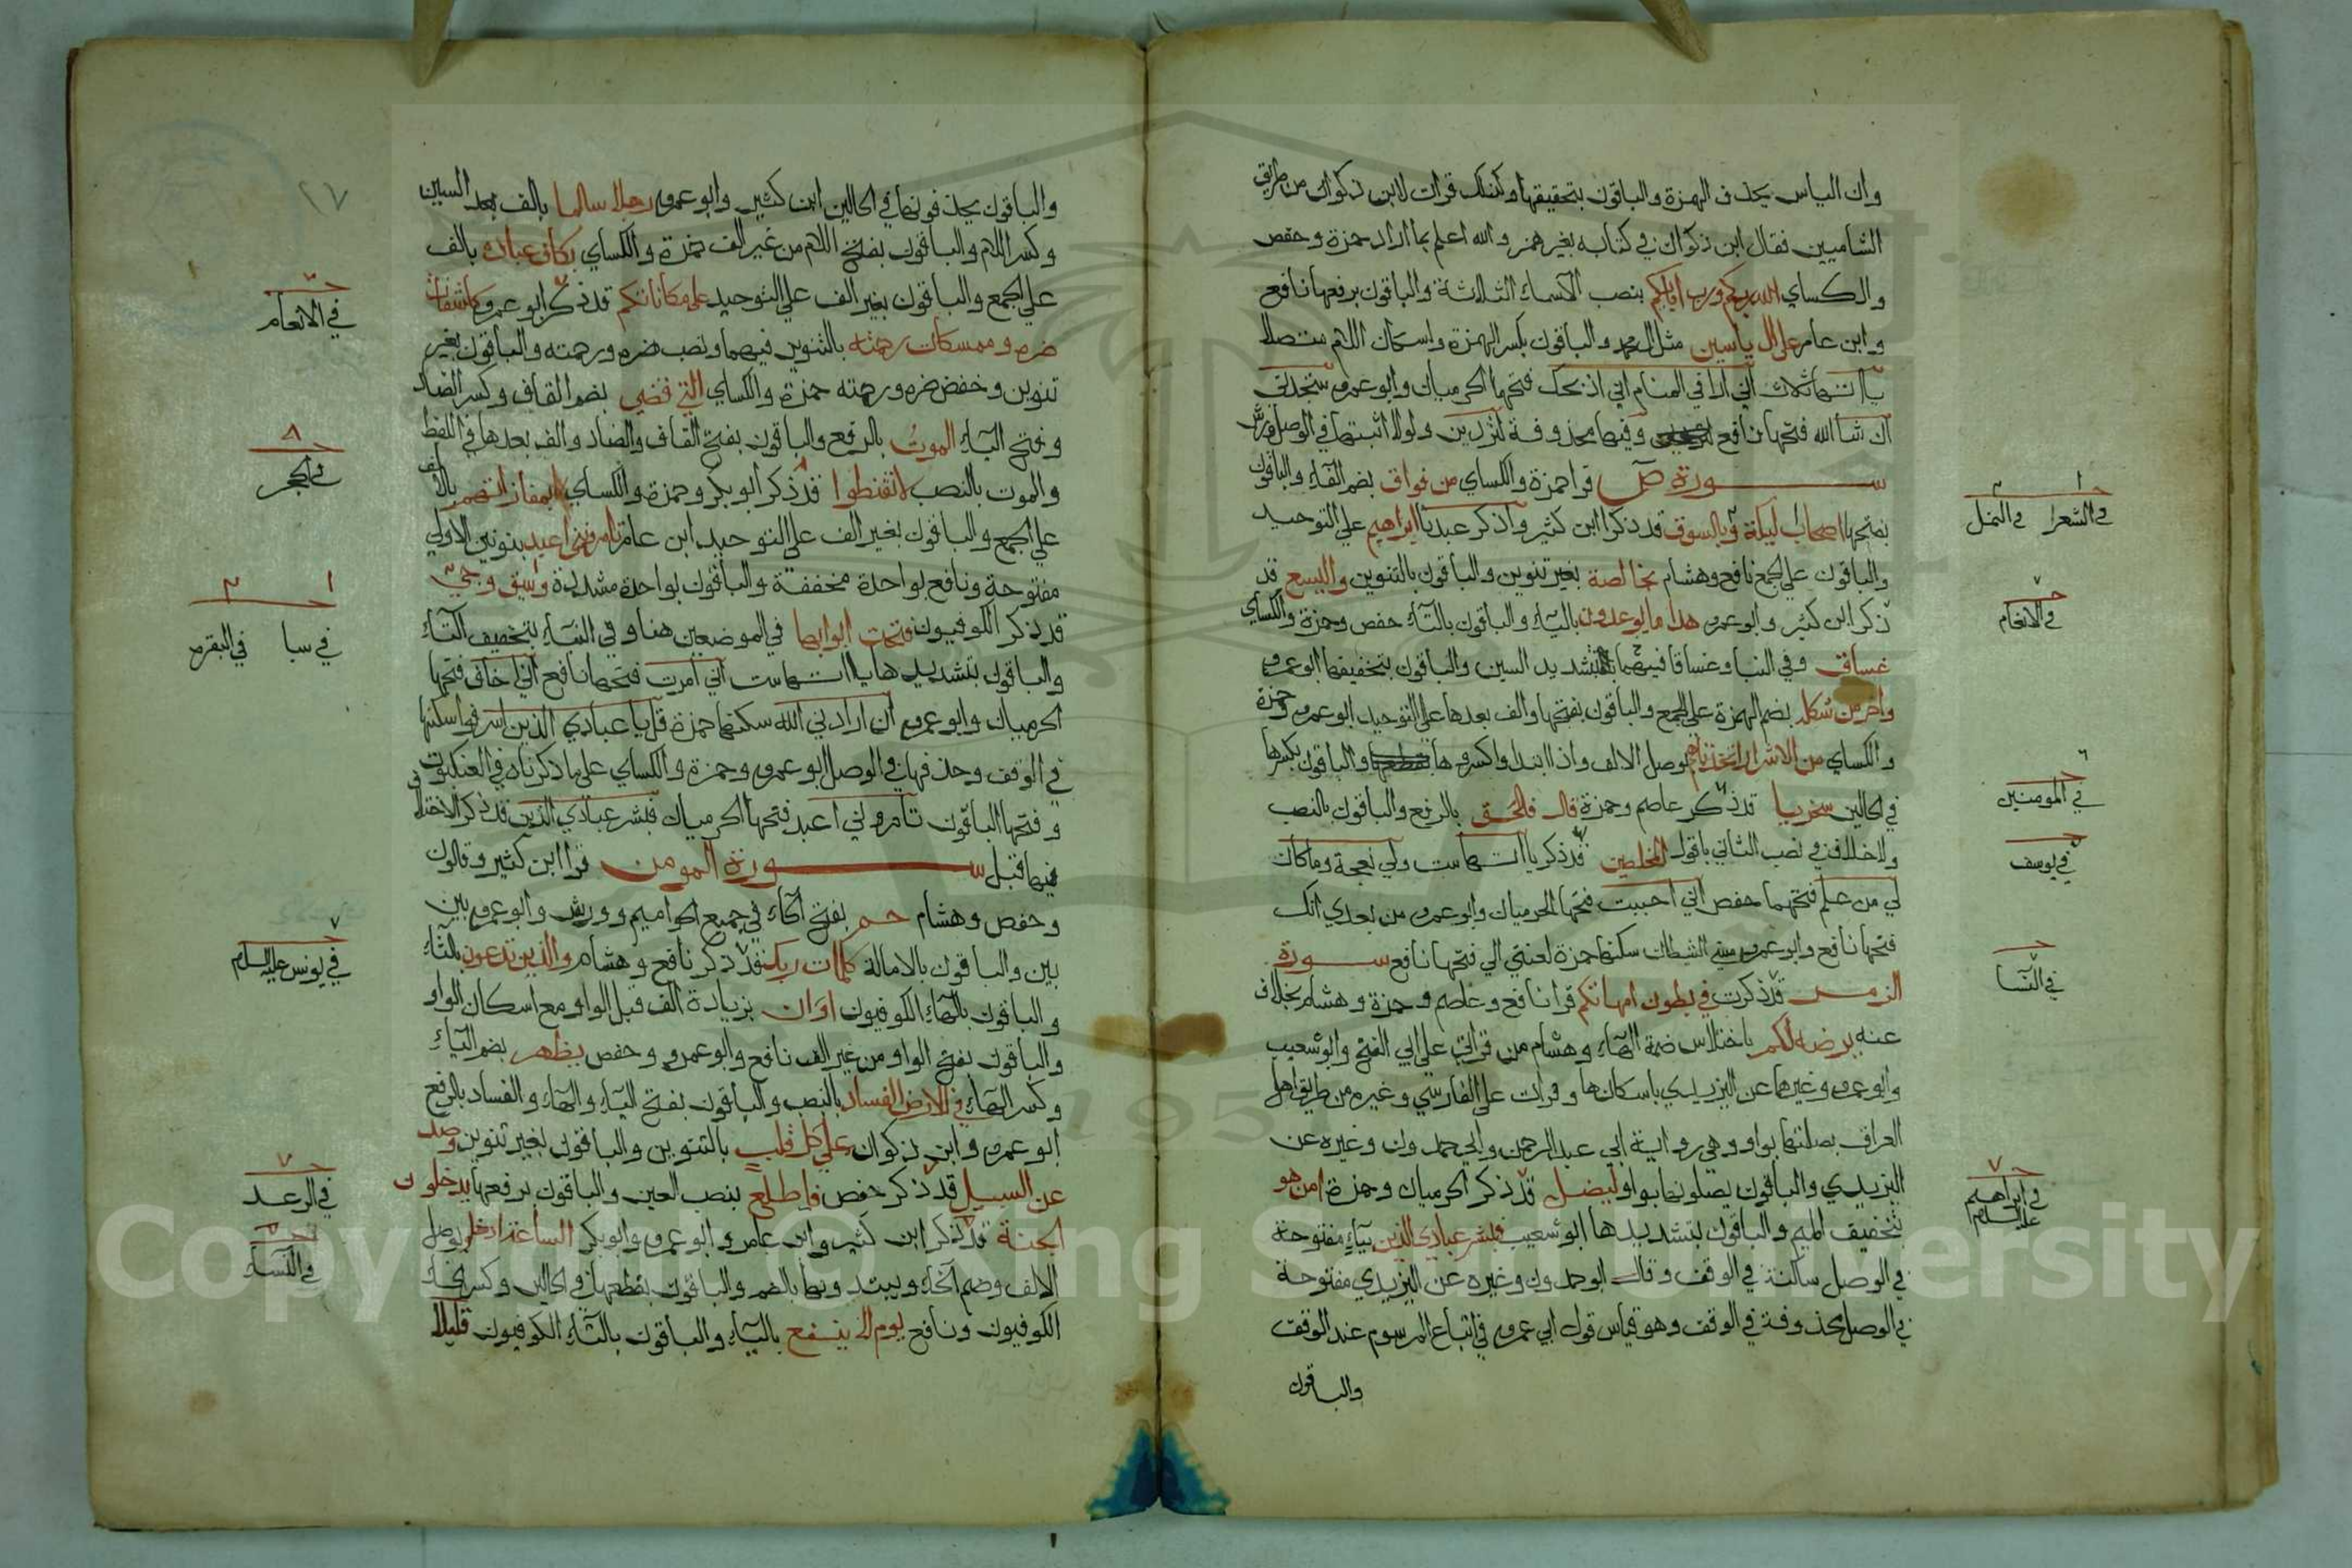 وان الياس بحذف الهمزة والباقون بتحقيقها وكذلك قرات لابن ذكوان من طريق
الشاميين فقال ابن ذكوان في كتابه بغير همز والله اعلم بما اراد حمزة وحفص
والكساي الله ربكم ورب ابايكم بنصب الاسماء الثلاثة والباقون برفعها نافع
وابن عامر على ال ياسين مثل ال محمد والباقون بكسر الهمزة واسكان اللام متصلا
ياآتها ثلاث اني ارا في المنام اني اذبحك فتحهما الحرميان وابو عمرو ستجدني
ان شا الله فتحها نافع وفيها محذوفة لتردين ولولا اثبتها في الوصل ورش
سورة ص قرا حمزة والكساي من فواق بضم الفاء والباقون
بفتحها اصحاب ليكة وبالسوق قد ذكرا ابن كثير واذكر عبدنا ابراهيم على التوحيد
والباقون على الجمع نافع وهشام بخالصة بغير تنوين والباقون بالتنوين واليسع قد
ذكر ابن كثير وابو عمرو هذا ما يوعدون بالياء والباقون بالتاء حفص وحمزة والكساي
غساق وفي النبا وغساقا فيهما بتشديد السين والباقون بتخفيفها ابو عمرو
واخر من شكله بضم الهمزة على الجمع والباقون بفتحها والف بعدها على التوحيد ابو عمرو وحمزة
والكساي من الاشرار اتخذناهم بوصل الالف واذا ابتدأوا كسروها والباقون بكسرها
في الحالين سخريا قد ذكر عاصم وحمزة قال فالحق بالرفع والباقون بالنصب
ولا خلاف في نصب الثاني باقول المخلصين قد ذكر ياآتها ست ولي نعجة وما كان
لي من علم فتحهما حفص اني احببت فتحها الحرميان وابو عمرو من بعدي انك
فتحها نافع وابو عمرو مسني الشيطان سكنها حمزة لعنتي الي فتحها نافع سورة
الزمر قد ذكرت في بطون امهاتكم قرا نافع وعاصم وحمزة وهشام بخلاف
عنه يرضه لكم باختلاس ضمة الهاء وهشام من قراتي على ابي الفتح وابو شعيب
وابو عمرو وغيرهما عن اليزيدي باسكانها وقرات على الفارسي وغيره من طريق اهل
العراق بصلتها بواو وهي رواية ابي عبد الرحمن وابي حمدون وغيره عن
اليزيدي والباقون يصلونها بواو ليضل قد ذكر الحرميان وحمزة امن هو
بتخفيف الميم والباقون بتشديدها ابو شعيب فبشر عبادي الذين بياء مفتوحة
في الوصل ساكنة في الوقف وقال ابو حمدون وغيره عن اليزيدي مفتوحة
في الوصل محذوفة في الوقف وهو قياس قول ابي عمرو في اتباع المرسوم عند الوقف
والباقون
في الشعرا في النمل
في الانعام
في المومنين
في يوسف
في النسا
في ابراهيم عليه السلام
٢٧
والباقون يحذفونها في الحالين ابن كثير وابو عمرو رجلا سالما بالف بعد السين
وكسر اللام والباقون بفتح اللام من غير الف حمزة والكساي بكاف عباده بالف
على الجمع والباقون بغير الف على التوحيد على مكاناتكم قد ذكر ابو عمرو كاشفات
ضره وممسكات رحمته بالتنوين فيهما ونصب ضره ورحمته والباقون بغير
تنوين وخفض ضره ورحمته حمزة والكساي التي قضي بضم القاف وكسر الضاد
وفتح الياء الموت بالرفع والباقون بفتح القاف والضاد والف بعدها في اللفظ
والموت بالنصب لا تقنطوا قد ذكر ابو بكر وحمزة والكساي بمفازاتهم بالالف
على الجمع والباقون بغير الف على التوحيد ابن عامر تامرونني اعبد بنونين الاولى
مفتوحة ونافع بواحدة مخففة والباقون بواحدة مشددة وسيق وجيء
قد ذكر الكوفيون فتحت ابوابها في الموضعين هنا وفي النبا بتخفيف التاء
والباقون بتشديدها ياآتها ست اني امرت فتحها نافع اني اخاف فتحها
الحرميان وابو عمرو ان ارادني الله سكنها حمزة قل يا عبادي الذين اسرفوا سكنها
في الوقف وحذفها في الوصل ابو عمرو وحمزة والكساي على ما ذكرناه في العنكبوت
وفتحها الباقون تامروني اعبد فتحها الحرميان فبشر عبادي الذين قد ذكر الاختلاف
فيها قبل سورة المومن قرا ابن كثير وقالون
وحفص وهشام حم بفتح الحاء في جميع الحواميم وورش وابو عمرو بين
بين والباقون بالامالة كلمات ربك قد ذكر نافع وهشام والذين تدعون بالتاء
والباقون بالياء الكوفيون او ان بزيادة الف قبل الواو مع اسكان الواو
والباقون بفتح الواو من غير الف نافع وابو عمرو وحفص يظهر بضم الياء
وكسر الهاء في الارض الفساد بالنصب والباقون بفتح الياء والهاء والفساد بالرفع
ابو عمرو وابن ذكوان على كل قلب بالتنوين والباقون بغير تنوين وصد
عن السبيل قد ذكر حفص فاطلع بنصب العين والباقون برفعها يدخلون
الجنة قد ذكر ابن كثير وابن عامر وابو عمرو وابو بكر الساعة ادخلوا بوصل
الالف وضم الخاء ويبتدونها بالضم والباقون بقطعها في الحالين وكسر الخاء
الكوفيون ونافع يوم لا ينفع بالياء والباقون بالتاء الكوفيون قليلا
في الانعام
في الحجر
في سبا في البقره
في يونس عليه السلام
في الرعد
في النساء
Copyright © King Saud University
1957